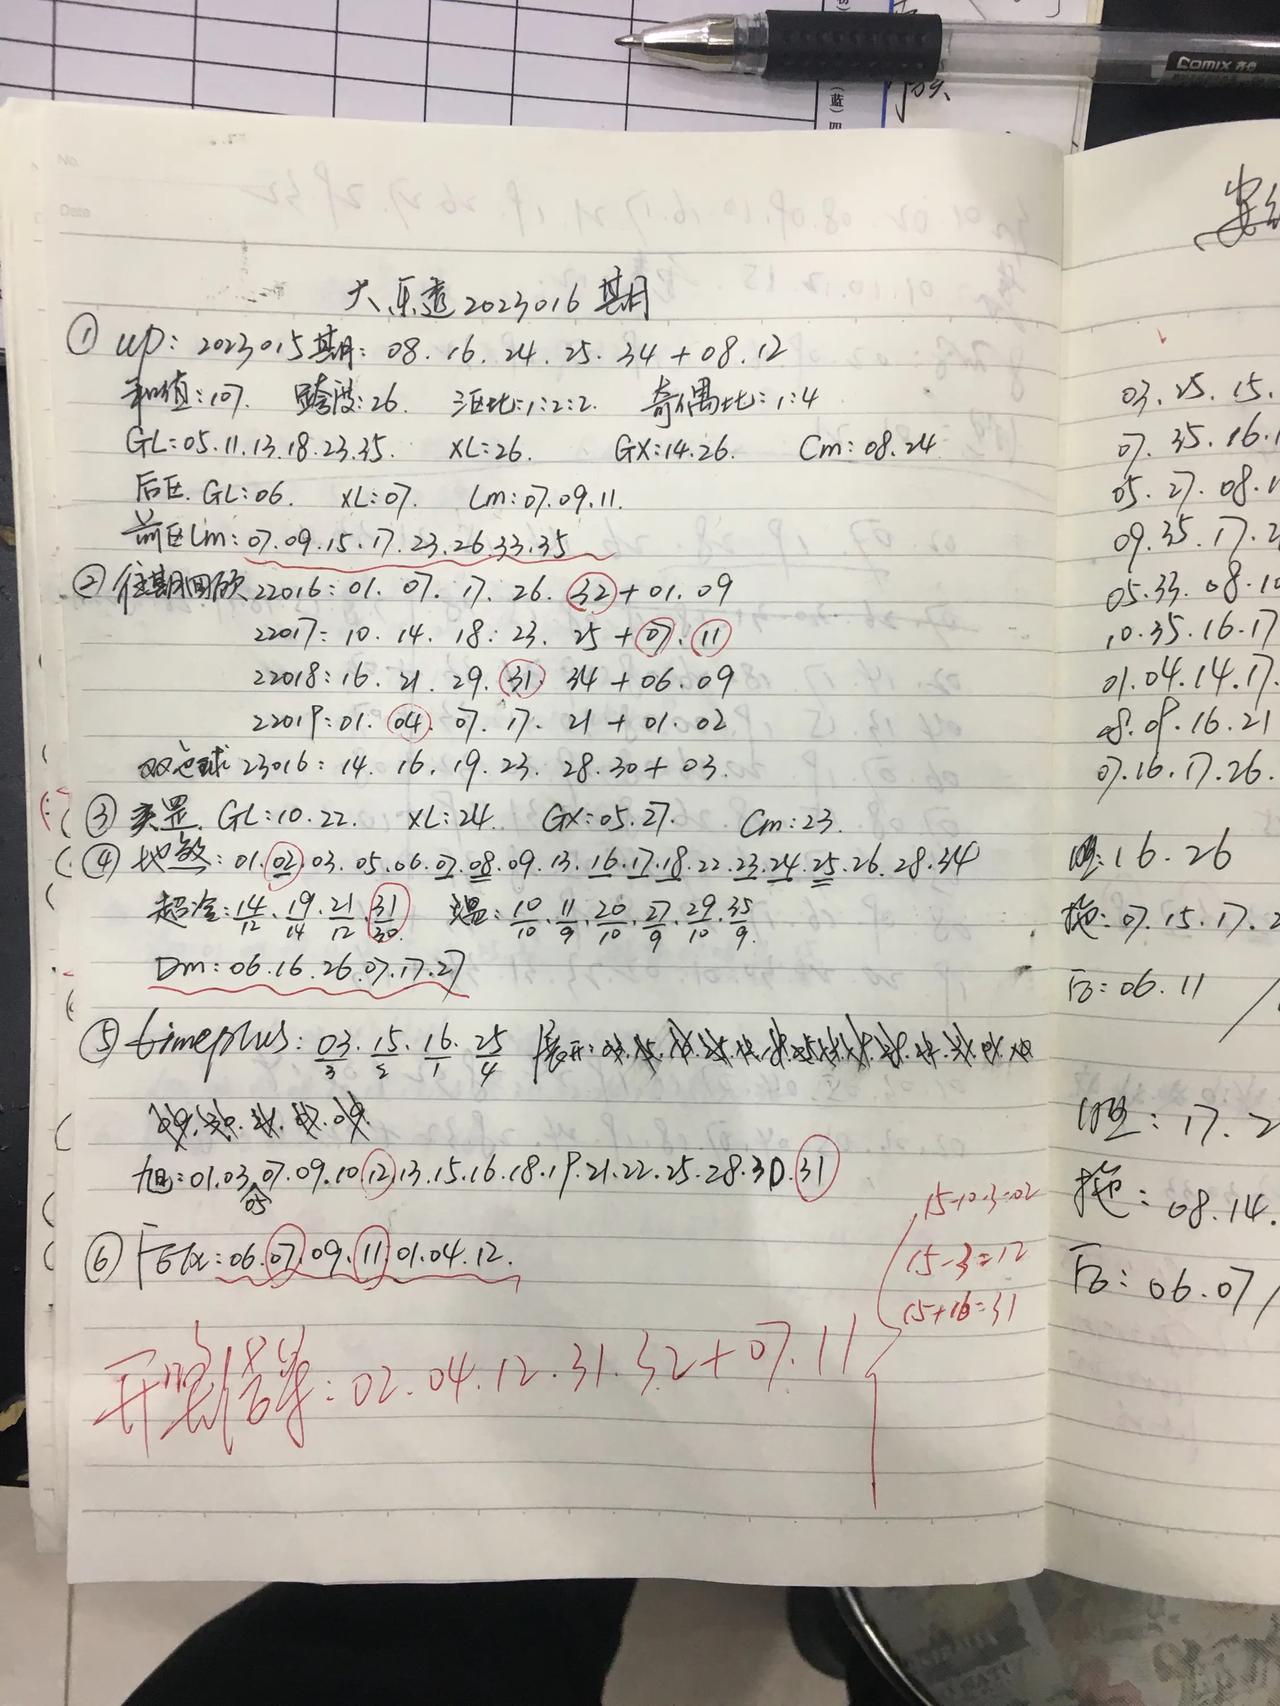 comix 齐心
(蓝)
No.
Date
大乐透2023016期
① up: 2023015期: 08.16.24.25.34+08.12
和值:107. 跨度:26. 三区比:1:2:2. 奇偶比:1:4
GL:05.11.13.18.23.35. XL:26. GX:14.26. Cm:08.24
后区. GL:06. XL:07. Lm:07.09.11.
前区Lm:07.09.15.17.23.26.33.35
② 往期回顾 22016:01.07.17.26.32+01.09
22017:10.14.18.23.25+07.11
22018:16.21.29.31.34+06.09
22019:01.04.07.17.21+01.02
双色球23016:14.16.19.23.28.30+03.
③ GL:10.22. XL:24. GX:05.27. Cm:23.
④ 01.02.03.05.06.07.08.09.13.16.17.18.22.23.24.25.26.28.34
超冷:14/12.19/14.21/12.31/30. 温:10/10.11/9.20/10.27/9.29/10.35/9.
Dm:06.16.26.07.17.27
⑤ timeplus:03/3.15/2.16/1.25/4 展开:
旭:01.03.05.07.09.10.12.13.15.16.18.19.21.22.25.28.30.31
⑥ 后区:06.07.09.11.01.04.12.
15-10-3=02
15-3=12
15+16=31
开奖答案:02.04.12.31.32+07.11
03.25.15.
07.35.16.1
05.27.08.1
09.35.17.2
05.33.08.10
10.35.16.17
01.04.14.17.
08.09.16.21
07.16.17.26.
胆:16.26
拖:07.15.17.2
后:06.11
胆:17.2
拖:08.14.
后:06.07